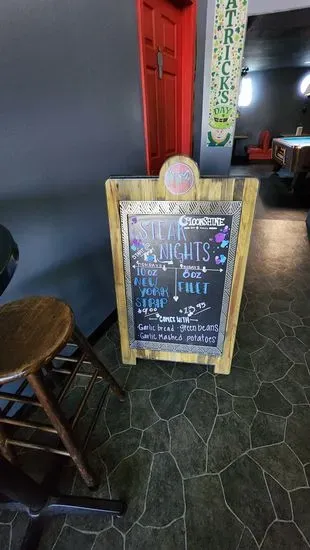 PATRICK'S
DAY
MOONSHINE
STEAK
NIGHTS
10 oz
8 OZ
NEW
YORK
STRIP
FILET
COMES WITH
Garlic bread - green beans
Garlic Mashed potatoes